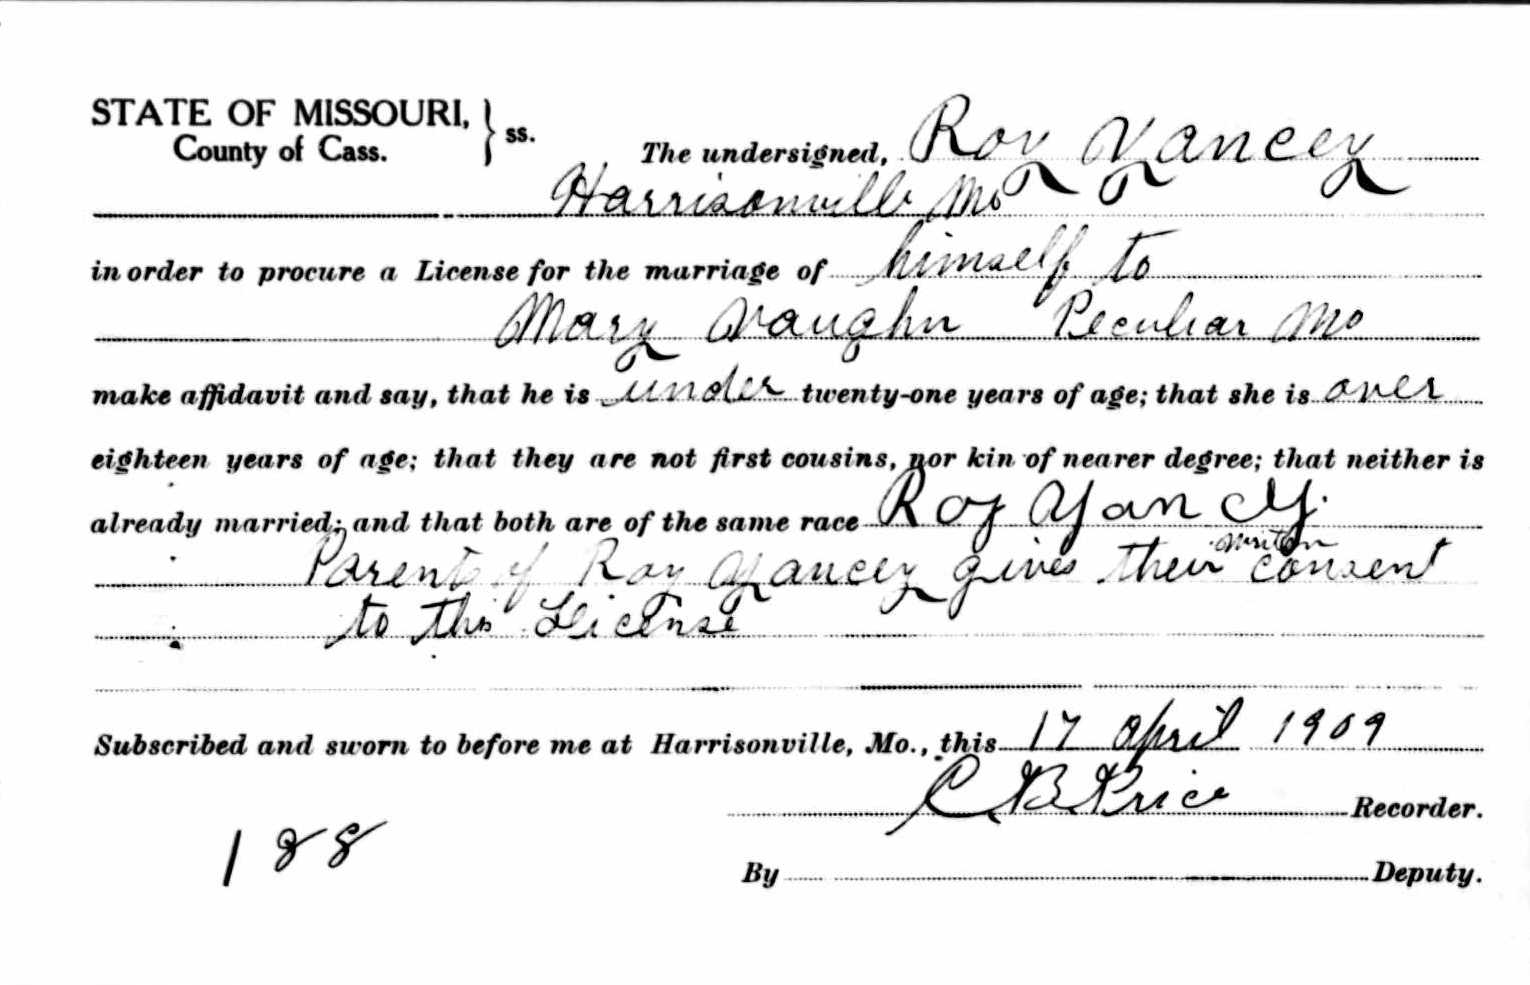 STATE OF MISSOURI, } ss.
County of Cass.
The undersigned, Roy Yancey
Harrisonville Mo
in order to procure a License for the marriage of himself to
Mary Vaughn Peculiar Mo
make affidavit and say, that he is under twenty-one years of age; that she is over
eighteen years of age; that they are not first cousins, nor kin of nearer degree; that neither is
already married; and that both are of the same race Roy Yancy.
written
Parents of Roy Yancey gives their consent
to this License
Subscribed and sworn to before me at Harrisonville, Mo., this 17 April 1909
C. B. Price Recorder.
188
By Deputy.